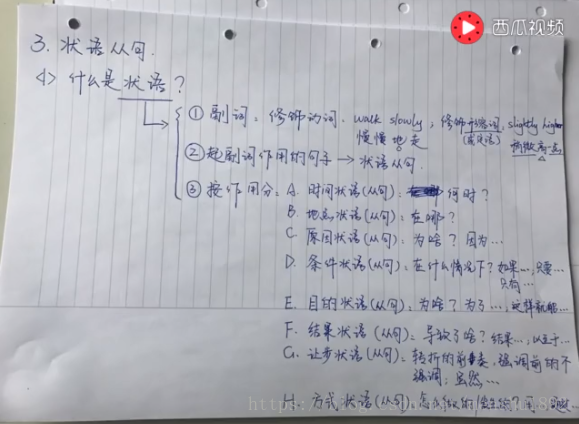 西瓜视频
3. 状语从句.
<1> 什么是状语?
① 副词: 修饰动词. walk slowly, 修饰形容词, slightly higher
慢慢地走 (或是语) 稍微高一点
② 起副词作用的句子 → 状语从句.
③ 按作用分: A. 时间状语(从句): 何时?
B. 地点状语(从句): 在哪?
C. 原因状语(从句): 为啥? 因为…
D. 条件状语(从句): 在什么情况下? 如果…, 只要…
只有…
E. 目的状语(从句): 为啥? 为了…, 这样就能…
F. 结果状语(从句): 导致了啥? 结果…, 以至于…
G. 让步状语(从句): 转折的前奏, 强调前的不
强调: 虽然…
H. 方式状语(从句):
https://